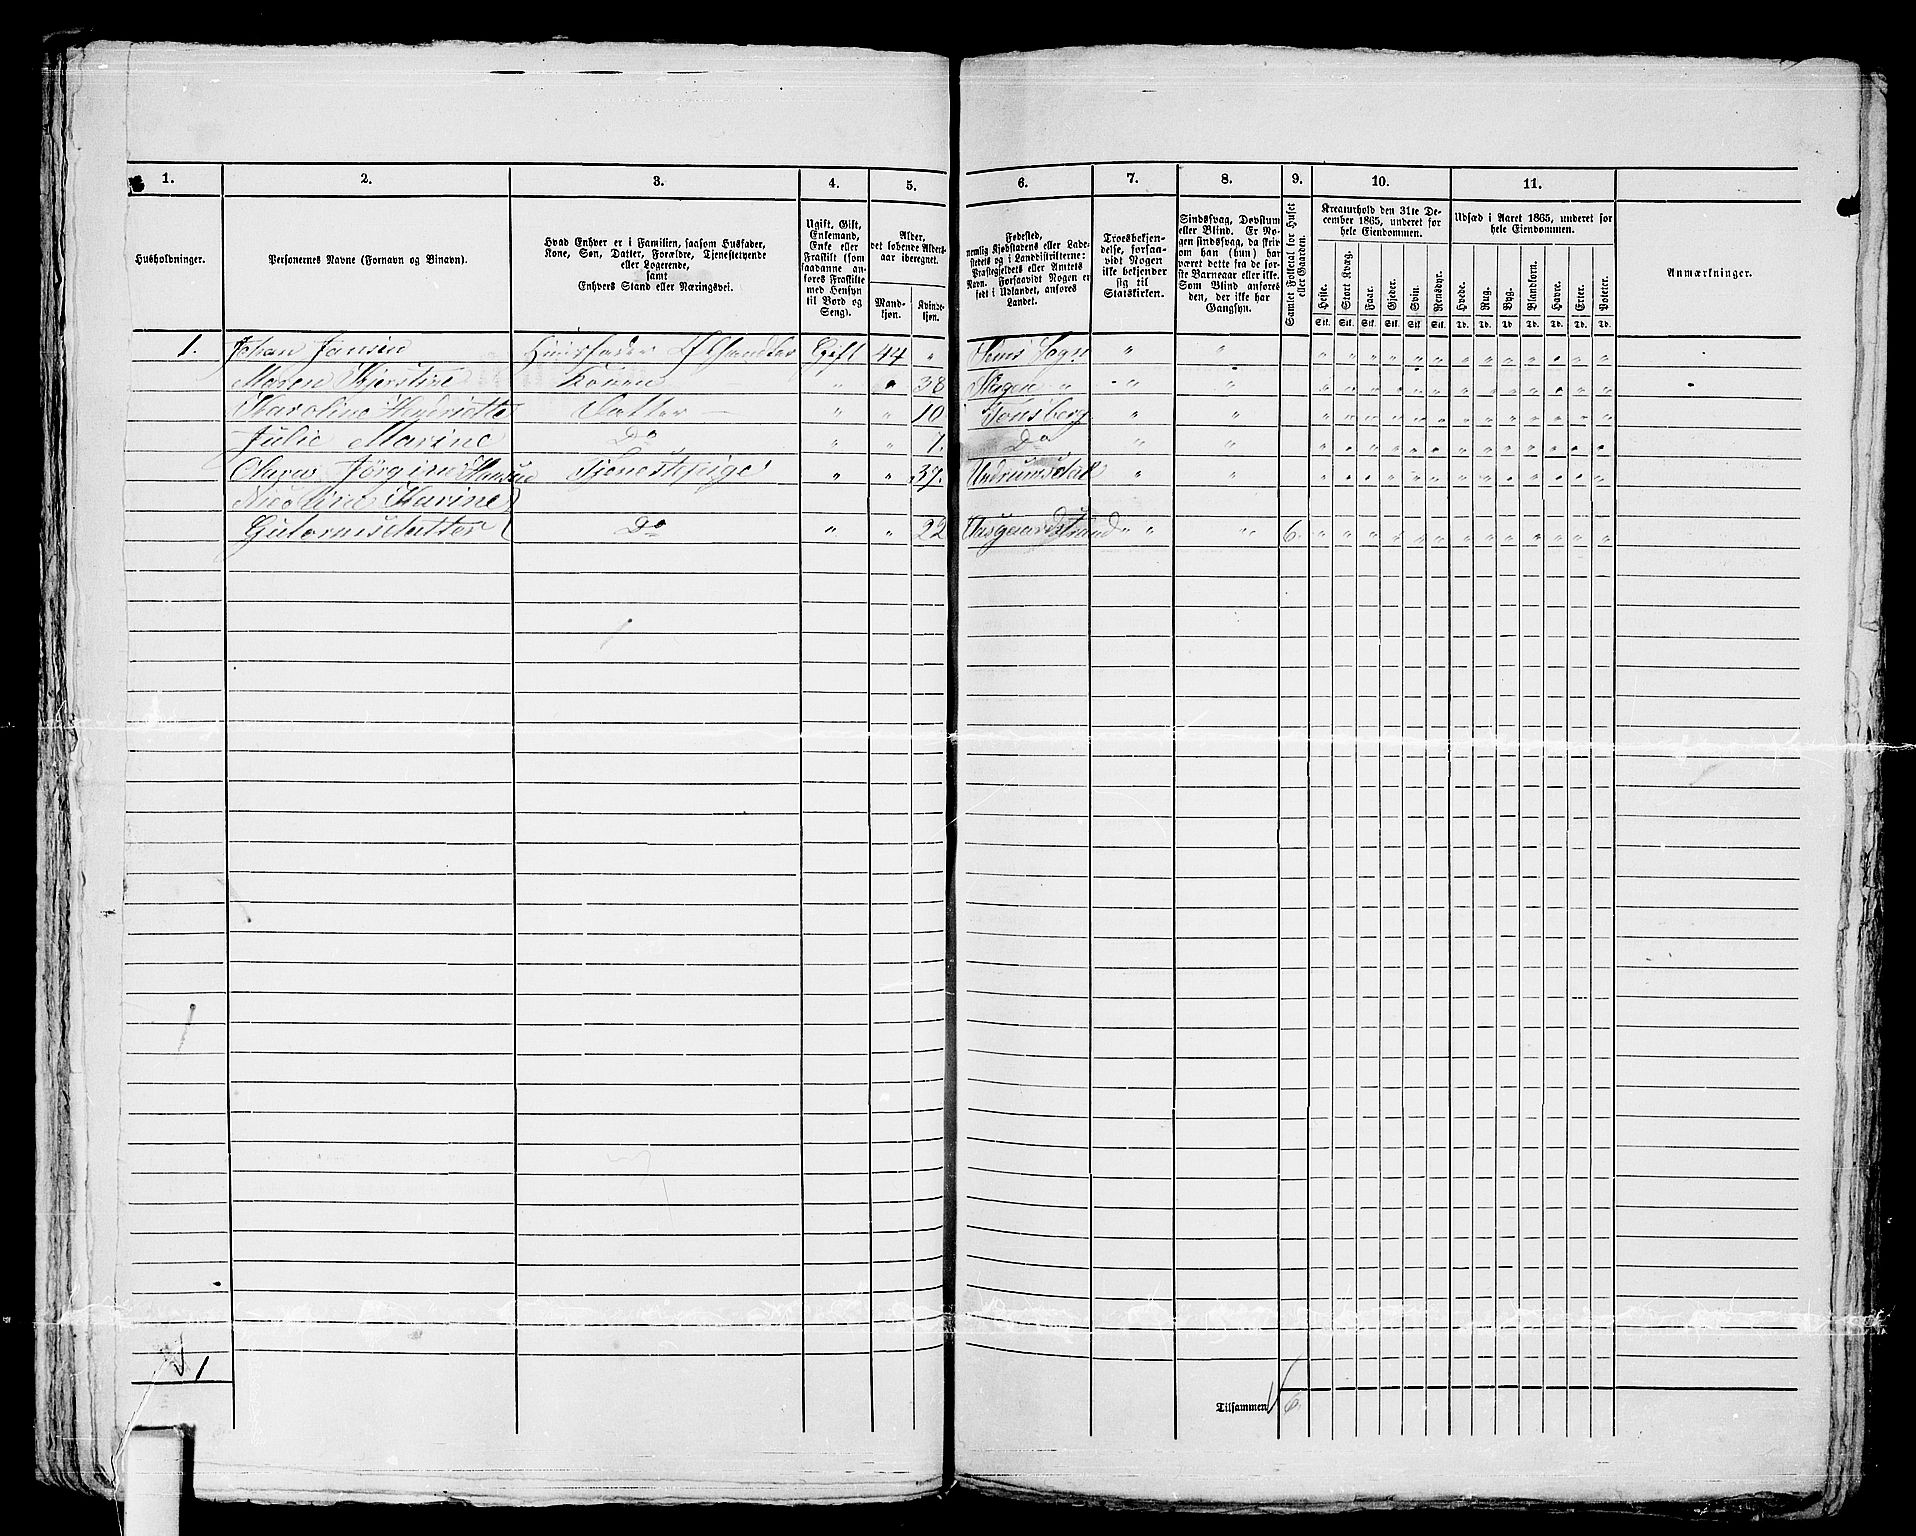 1. 2. 3. 4. 5. 6. 7. 8. 9. 10. 11.
Husholdninger.
Personernes Navne (Fornavn og Binavn).
Hvad Enhver er i Familien, saasom Husfader,
Kone, Søn, Datter, Forældre, Tjenestetyende
eller Logerende,
samt
Enhvers Stand eller Næringsvei.
Ugift, Gift,
Enkemand,
Enke eller
Fraskilt (som
saadanne an-
føres Fraskilte
med Hensyn
til Bord og
Seng).
Alder,
det løbende Alders-
aar iberegnet.
Mand-
kjøn.
Kvinde-
kjøn.
Fødested,
nemlig Kjøbstadens eller Lade-
stedets og i Landdistrikterne:
Præstegjeldets eller Amtets
Navn. Forsaavidt Nogen er
født i Udlandet, anføres
Landet.
Troesbekjen-
delse, forsaa-
vidt Nogen
ikke bekjender
sig til
Statskirken.
Sindssvag, Døvstum
eller Blind. Er No-
gen sindssvag, da skriv
om han (hun) har
været dette fra de før-
ste Barneaar eller ikke.
Som Blind anføres
den, der ikke har
Gangsyn.
Samlet Folketal for Huset
eller Gaarden.
Kreaturhold den 31te De-
cember 1865, underet for
hele Eiendommen.
Heste. Stort Kvæg. Faar. Gjeder. Svin. Rensdyr.
Stk. Stk. Stk. Stk. Stk. Stk.
Udsæd i Aaret 1865, underet for
hele Eiendommen.
Hvede. Rug. Byg. Blandkorn. Havre. Erter. Poteter.
Td. Td. Td. Td. Td. Td. Td.
Anmærkninger.
1. Johan Jansen Huusfader Gift 44 " Sems Sogn " "
Maren Kjerstine Konen " " 38 Slagen " " "
Karoline Henriette Datter " " 10 Tønsberg " "
Julie Marine Do " " 7. Do " "
Jørgine Hansen Tjenestpige " " 37. Undrumsdal " "
Karine
Gutormsdatter Do " " 22 Aasgaardstrand " " " 6.
1
Tilsammen 6